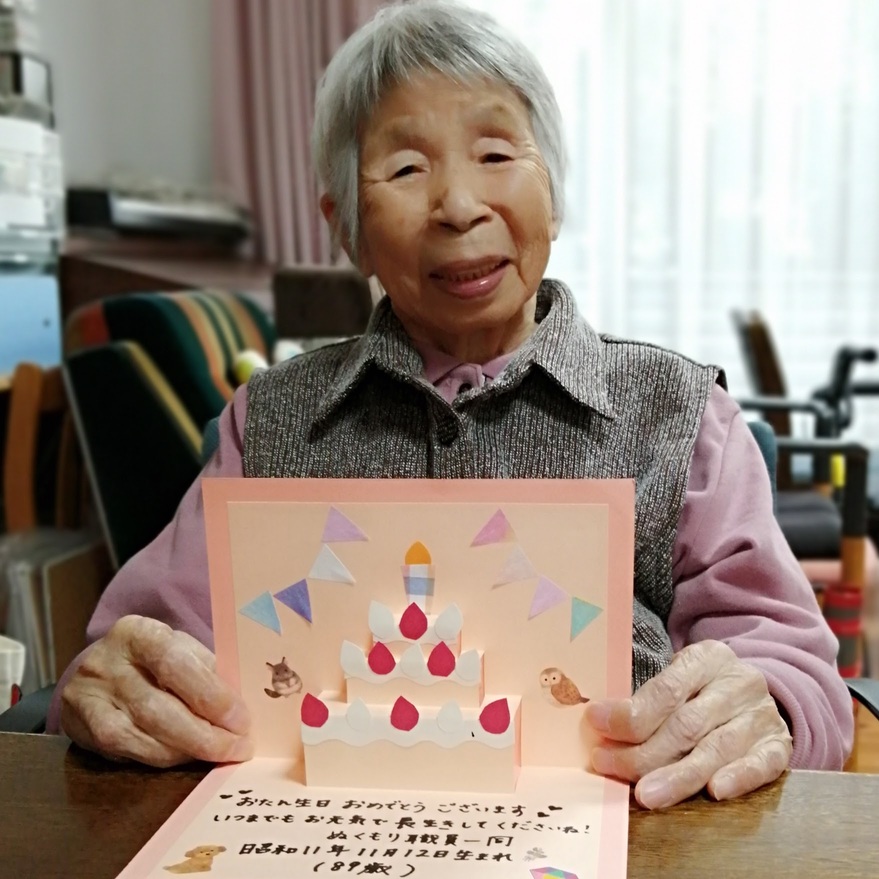 おたん生日 おめでとう ございます
いつまでも お元気で 長生きしてくださいね!
ぬくもり職員一同
昭和11年11月12日生まれ
(89歳)